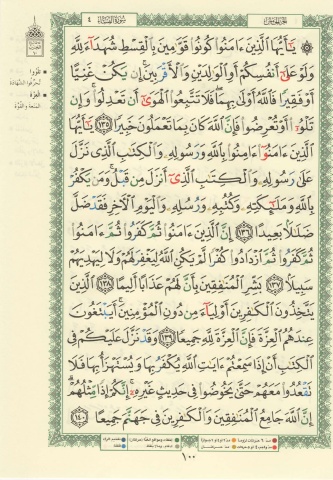 الجزء الخامس
سورة النساء ٤
۞ يَـٰٓأَيُّهَا ٱلَّذِينَ ءَامَنُوا۟ كُونُوا۟ قَوَّٰمِينَ بِٱلْقِسْطِ شُهَدَآءَ لِلَّهِ
وَلَوْ عَلَىٰٓ أَنفُسِكُمْ أَوِ ٱلْوَٰلِدَيْنِ وَٱلْأَقْرَبِينَ ۚ إِن يَكُنْ غَنِيًّا
أَوْ فَقِيرًا فَٱللَّهُ أَوْلَىٰ بِهِمَا ۖ فَلَا تَتَّبِعُوا۟ ٱلْهَوَىٰٓ أَن تَعْدِلُوا۟ ۚ وَإِن
تَلْوُۥٓا۟ أَوْ تُعْرِضُوا۟ فَإِنَّ ٱللَّهَ كَانَ بِمَا تَعْمَلُونَ خَبِيرًا ١٣٥ يَـٰٓأَيُّهَا
ٱلَّذِينَ ءَامَنُوٓا۟ ءَامِنُوا۟ بِٱللَّهِ وَرَسُولِهِۦ وَٱلْكِتَـٰبِ ٱلَّذِى نَزَّلَ
عَلَىٰ رَسُولِهِۦ وَٱلْكِتَـٰبِ ٱلَّذِىٓ أَنزَلَ مِن قَبْلُ ۚ وَمَن يَكْفُرْ
بِٱللَّهِ وَمَلَـٰٓئِكَتِهِۦ وَكُتُبِهِۦ وَرُسُلِهِۦ وَٱلْيَوْمِ ٱلْـَٔاخِرِ فَقَدْ ضَلَّ
ضَلَـٰلًۢا بَعِيدًا ١٣٦ إِنَّ ٱلَّذِينَ ءَامَنُوا۟ ثُمَّ كَفَرُوا۟ ثُمَّ ءَامَنُوا۟
ثُمَّ كَفَرُوا۟ ثُمَّ ٱزْدَادُوا۟ كُفْرًا لَّمْ يَكُنِ ٱللَّهُ لِيَغْفِرَ لَهُمْ وَلَا لِيَهْدِيَهُمْ
سَبِيلًۢا ١٣٧ بَشِّرِ ٱلْمُنَـٰفِقِينَ بِأَنَّ لَهُمْ عَذَابًا أَلِيمًا ١٣٨ ٱلَّذِينَ
يَتَّخِذُونَ ٱلْكَـٰفِرِينَ أَوْلِيَآءَ مِن دُونِ ٱلْمُؤْمِنِينَ ۚ أَيَبْتَغُونَ
عِندَهُمُ ٱلْعِزَّةَ فَإِنَّ ٱلْعِزَّةَ لِلَّهِ جَمِيعًا ١٣٩ وَقَدْ نَزَّلَ عَلَيْكُمْ فِى
ٱلْكِتَـٰبِ أَنْ إِذَا سَمِعْتُمْ ءَايَـٰتِ ٱللَّهِ يُكْفَرُ بِهَا وَيُسْتَهْزَأُ بِهَا فَلَا
تَقْعُدُوا۟ مَعَهُمْ حَتَّىٰ يَخُوضُوا۟ فِى حَدِيثٍ غَيْرِهِۦٓ ۚ إِنَّكُمْ إِذًا مِّثْلُهُمْ ۗ
إِنَّ ٱللَّهَ جَامِعُ ٱلْمُنَـٰفِقِينَ وَٱلْكَـٰفِرِينَ فِى جَهَنَّمَ جَمِيعًا ١٤٠
١٠٠